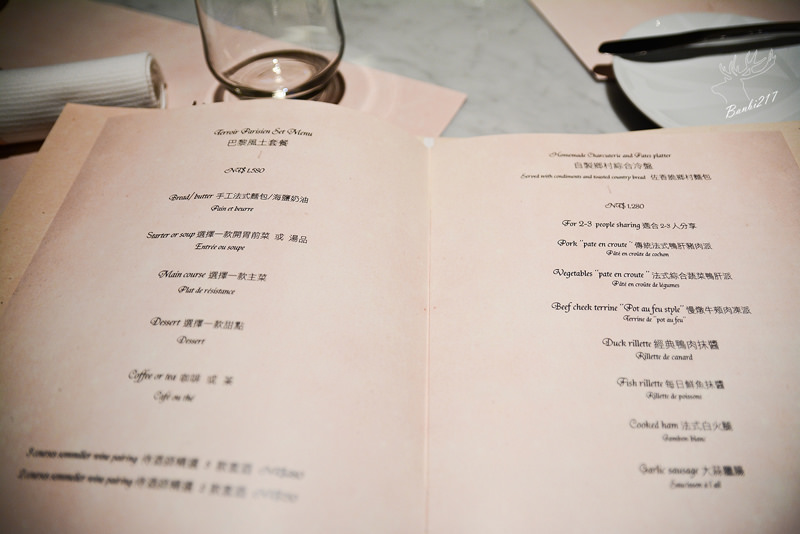 Terroir Parisien Set Menu
巴黎風土套餐
NT$ 1,580
Bread/ butter 手工法式麵包/海鹽奶油
Pain et beurre
Starter or soup 選擇一款開胃前菜 或 湯品
Entrée ou soupe
Main course 選擇一款主菜
Plat de résistance
Dessert 選擇一款甜點
Dessert
Coffee or tea 咖啡 或 茶
Café ou thé
sommelier wine pairing 侍酒師精選
sommelier wine pairing 侍酒師精選
Homemade Charcuterie and Pates platter
自製鄉村綜合冷盤
Served with condiments and toasted country bread 佐香脆鄉村麵包
NT$ 1,280
For 2-3 people sharing 適合 2-3 人分享
Pork "pate en croute" 傳統法式鴨肝豬肉派
Pâté en croûte de cochon
Vegetables "pate en croute" 法式綜合蔬菜鴨肝派
Pâté en croûte de légumes
Beef cheek terrine "Pot au feu style" 慢燉牛頰肉凍派
Terrine de "pot au feu"
Duck rillette 經典鴨肉抹醬
Rillette de canard
Fish rillette 每日鮮魚抹醬
Rillette de poissons
Cooked ham 法式白火腿
Jambon blanc
Garlic sausage 大蒜臘腸
Saucisson à l'ail
Banbi217